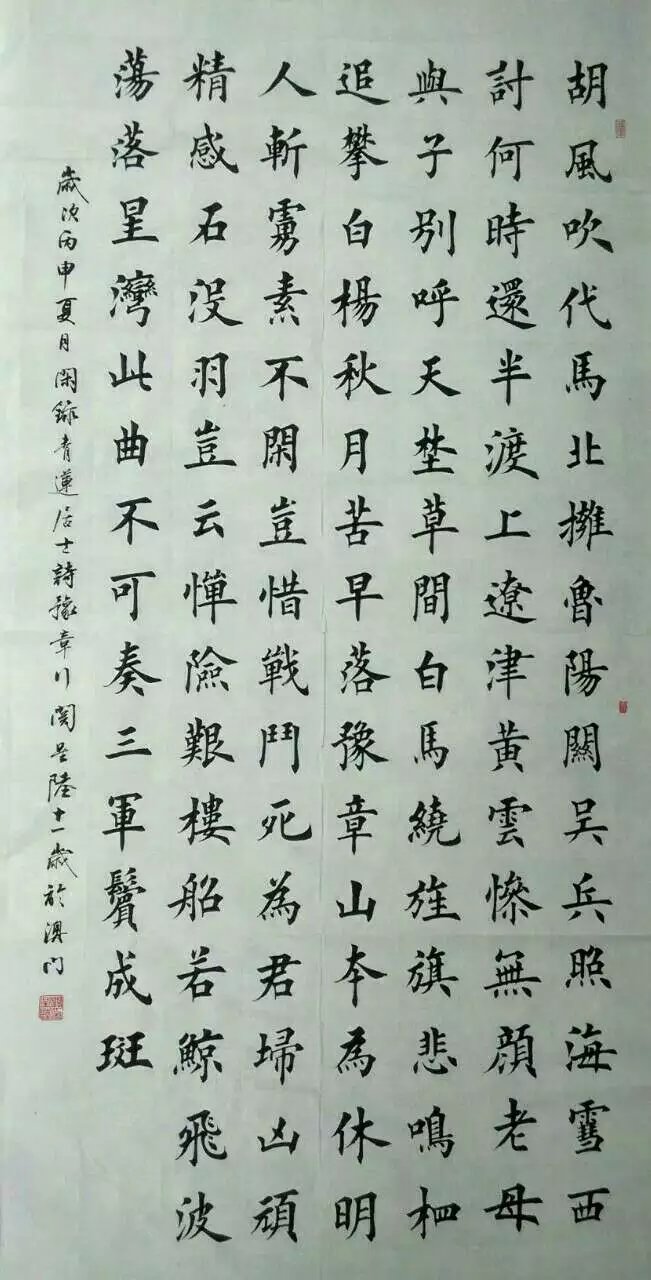 胡風吹代馬北擁魯陽關吳兵照海雪西
討何時還半渡上遼津黃雲慘無顏老母
與子別呼天埜草間白馬繞旌旗悲鳴相
追攀白楊秋月苦早落豫章山本為休明
人斬虜素不閑豈惜戰鬥死為君埽凶頑
精感石沒羽豈云憚險艱樓船若鯨飛波
蕩落星灣此曲不可奏三軍鬢成斑
歲次丙申夏月閑錄青蓮居士詩豫章行 陸十一歲於澳門